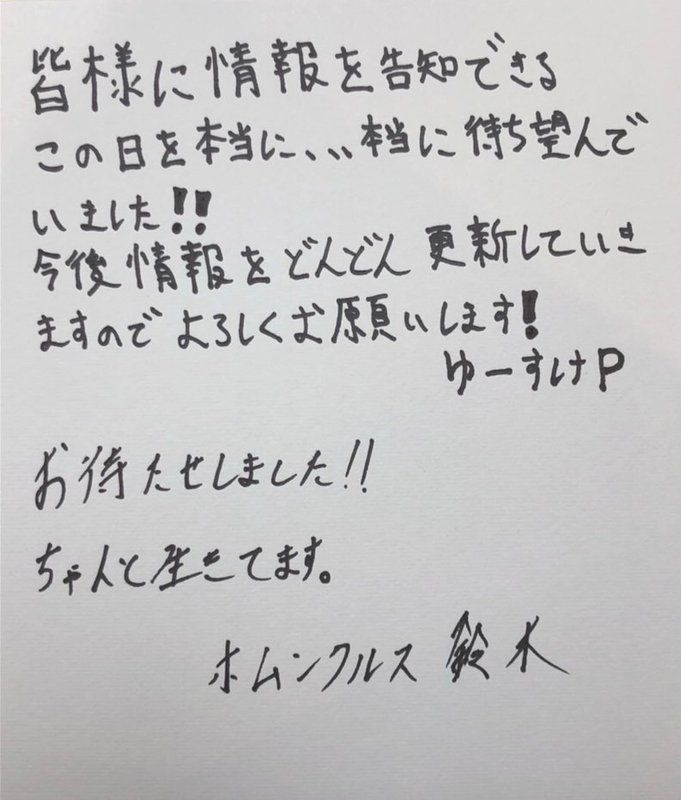 皆様に情報を告知できる
この日を本当に、、、本当に待ち望んで
いました!!
今後情報をどんどん更新していき
ますのでよろしくお願いします!
ゆーすけP
お待たせしました!!
ちゃんと生きてます。
ホムンクルス 鈴木